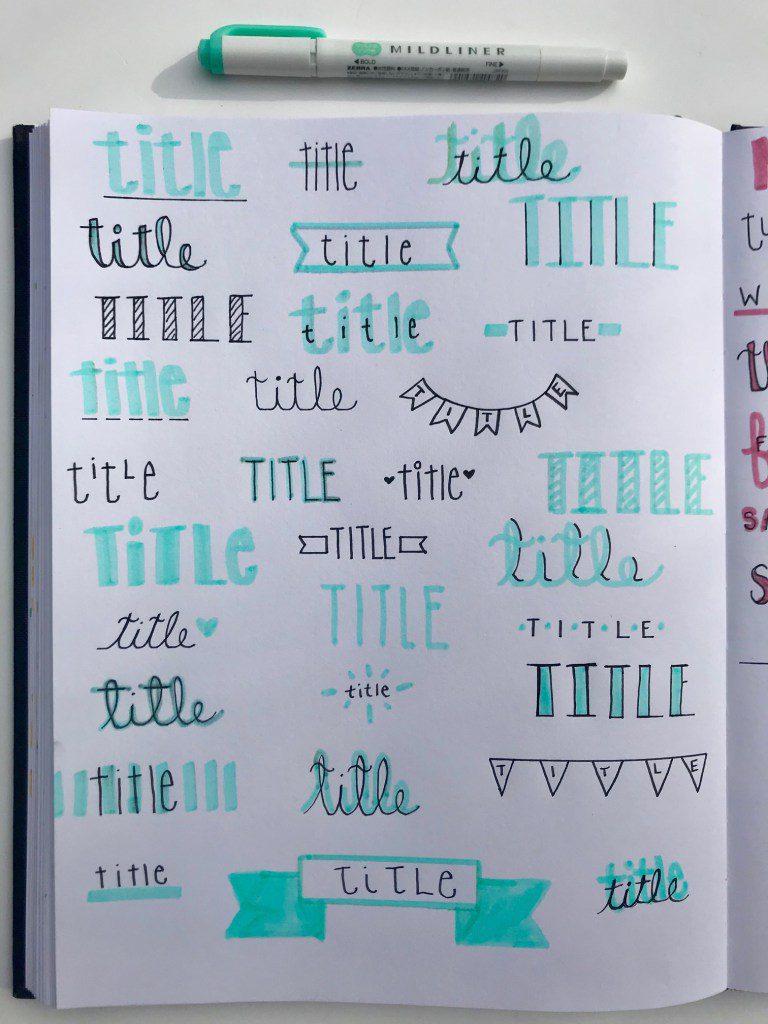 MILDLINER
◀BOLD FINE▶
ZEBRA
title title title
title title TITLE
TITLE title TITLE
title title TITLE
titLe TITLE title TITLE
TiTLe TITLE title
title TITLE •T•I•T•L•E•
title title TITLE
title title TITLE
title TiTLe title
W
SA